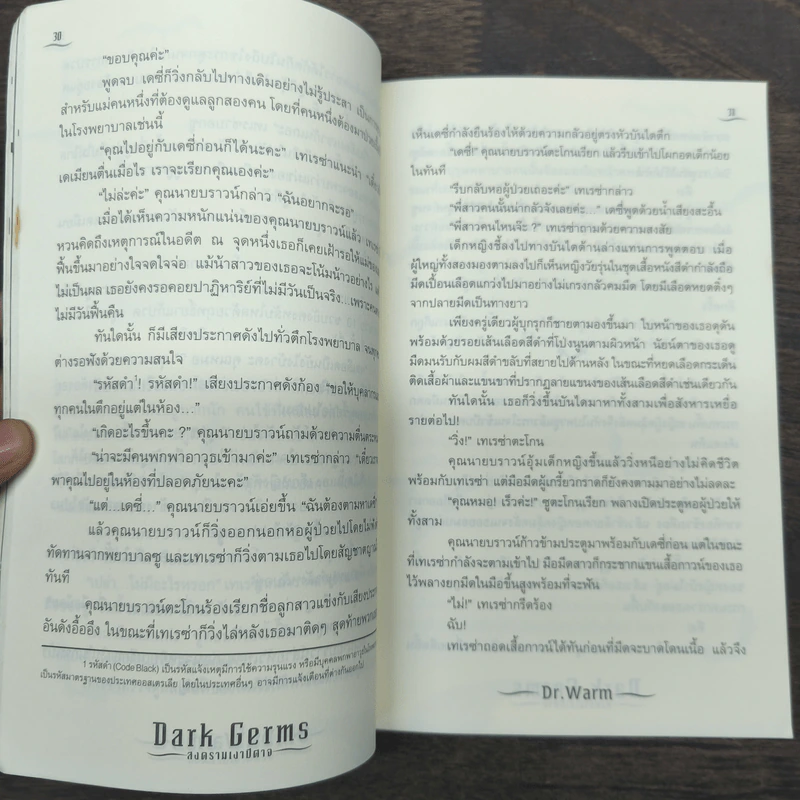 30
“ขอบคุณค่ะ”
พูดจบ เดซี่ก็วิ่งกลับไปทางเดิมอย่างไม่รู้ประสา
สำหรับแม่คนหนึ่งที่ต้องดูแลลูกสองคน โดยที่คนหนึ่งต้องมา
ในโรงพยาบาลเช่นนี้
“คุณไปอยู่กับเดซี่ก่อนก็ได้นะคะ” เทเรซ่าแนะนำ
เดเมียนตื่นเมื่อไร เราจะเรียกคุณเองค่ะ”
“ไม่ล่ะค่ะ” คุณนายบราวน์กล่าว “ฉันอยากจะรอ”
เมื่อได้เห็นความหนักแน่นของคุณนายบราวน์แล้ว
หวนคิดถึงเหตุการณ์ในอดีต ณ จุดหนึ่งเธอก็เคยเฝ้ารอให้แม่ของ
ฟื้นขึ้นมาอย่างใจจดใจจ่อ แม้น้าสาวของเธอจะโน้มน้าวอย่างไร
ไม่เป็นผล เธอยังคงรอคอยปาฏิหาริย์ที่ไม่มีวันเป็นจริง...เพราะ
ไม่มีวันฟื้นคืน
ทันใดนั้น ก็มีเสียงประกาศดังไปทั่วตึกโรงพยาบาล
ต่างรอฟังด้วยความสนใจ
“รหัสดำ¹! รหัสดำ!” เสียงประกาศดังก้อง “ขอให้บุคลากร
ทุกคนในตึกอยู่แต่ในห้อง...”
“เกิดอะไรขึ้นคะ ?” คุณนายบราวน์ถามด้วยความตื่นตระหนก
“น่าจะมีคนพกพาอาวุธเข้ามาค่ะ” เทเรซ่ากล่าว
พาคุณไปอยู่ในห้องที่ปลอดภัยนะคะ”
“แต่...เดซี่...” คุณนายบราวน์เอ่ยขึ้น “ฉันต้องตามหา
แล้วคุณนายบราวน์ก็วิ่งออกนอกหอผู้ป่วยไปโดยไม่
ทัดทานจากพยาบาลซู และเทเรซ่าก็วิ่งตามเธอไปโดยสัญชาตญาณ
ทันที
คุณนายบราวน์ตะโกนร้องเรียกชื่อลูกสาวแข่งกับเสียง
อันดังอื้ออึง ในขณะที่เทเรซ่าก็วิ่งไล่หลังเธอมาติดๆ สุดท้าย
1 รหัสดำ (Code Black) เป็นรหัสแจ้งเหตุมีการใช้ความรุนแรง หรือมีบุคคลพกพาอาวุธ
เป็นรหัสมาตรฐานของประเทศออสเตรเลีย โดยในประเทศอื่นๆ อาจมีการแจ้งเตือนที่ต่างกันออกไป
Dark Germs
สงครามเงาปีศาจ
31
เห็นเดซี่กำลังยืนร้องไห้ด้วยความกลัวอยู่ตรงหัวบันไดตึก
“เดซี่!” คุณนายบราวน์ตะโกนเรียก แล้วรีบเข้าไปโผกอดเด็กน้อย
ในทันที
“รีบกลับหอผู้ป่วยเถอะค่ะ” เทเรซ่ากล่าว
“พี่สาวคนนั้นน่ากลัวจังเลยค่ะ...” เดซี่พูดด้วยน้ำเสียงสะอื้น
“พี่สาวคนไหนจ๊ะ ?” เทเรซ่าถามด้วยความสงสัย
เด็กหญิงชี้ลงไปทางบันไดด้านล่างแทนการพูดตอบ เมื่อ
ผู้ใหญ่ทั้งสองมองตามลงไปก็เห็นหญิงวัยรุ่นในชุดเสื้อหนังสีดำกำลังถือ
มีดเปื้อนเลือดแกว่งไปมาอย่างไม่เกรงกลัวคมมีด โดยมีเลือดหยดติ๋งๆ
จากปลายมีดเป็นทางยาว
เพียงครู่เดียวผู้บุกรุกก็ชายตามองขึ้นมา ใบหน้าของเธอดุดัน
พร้อมด้วยรอยเส้นเลือดสีดำที่โป่งนูนตามผิวหน้า นัยน์ตาของเธอดู
มืดมนรับกับผมสีดำขลับที่สยายไปด้านหลัง ในขณะที่หยดเลือดกระเด็น
ติดเสื้อผ้าและแขนขาที่ปรากฏลายแขนงของเส้นเลือดสีดำเช่นเดียวกัน
ทันใดนั้น เธอก็วิ่งขึ้นบันไดมาหาทั้งสามเพื่อสังหารเหยื่อ
รายต่อไป!
“วิ่ง!” เทเรซ่าตะโกน
คุณนายบราวน์อุ้มเด็กหญิงขึ้นแล้ววิ่งหนีอย่างไม่คิดชีวิต
พร้อมกับเทเรซ่า แต่มือมีดผู้เกรี้ยวกราดก็ยังคงตามมาอย่างไม่ลดละ
“คุณหมอ! เร็วค่ะ!” ซูตะโกนเรียก พลางเปิดประตูหอผู้ป่วยให้
ทั้งสาม
คุณนายบราวน์ก้าวข้ามประตูมาพร้อมกับเดซี่ก่อน แต่ในขณะ
ที่เทเรซ่ากำลังจะตามเข้าไป มือมีดสาวก็กระชากแขนเสื้อกาวน์ของเธอ
ไว้พลางยกมีดในมือขึ้นสูงพร้อมที่จะฟัน
“ไม่!” เทเรซ่ากรีดร้อง
ฉับ!
เทเรซ่าถอดเสื้อกาวน์ได้ทันก่อนที่มีดจะบาดโดนเนื้อ แล้วจึง
Dr.Warm